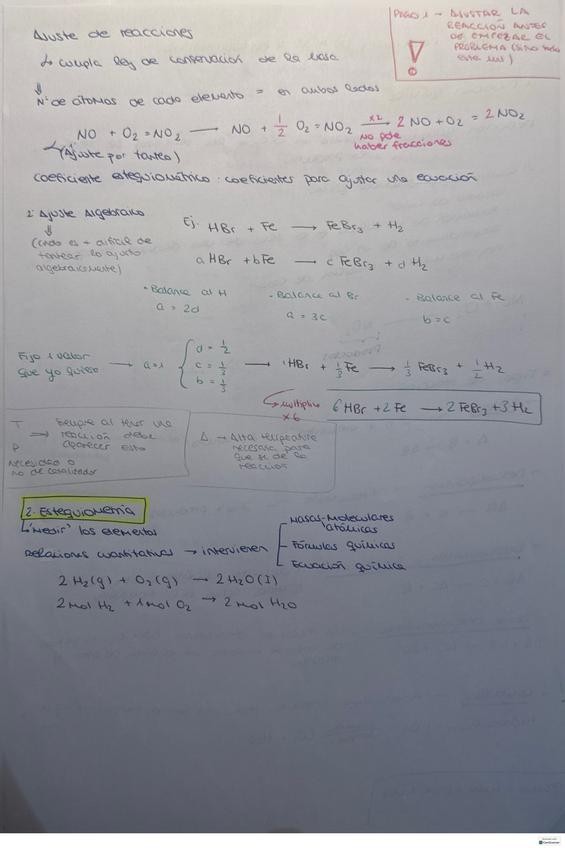 PASO 1 → AJUSTAR LA
REACCIÓN ANTES
DE EMPEZAR EL
PROBLEMA (sino todo
esta mal)
!
Ajuste de reacciones
↳ cumpla ley de conservación de la masa
⇓
Nº de átomos de cada elemento = en ambos lados
NO + O₂ = NO₂ → NO + 1/2 O₂ = NO₂ →(x2) 2 NO + O₂ = 2 NO₂
(Ajuste por tanteo)
No pde
haber fracciones
coeficiente estequiométrico: coeficientes para ajustar una ecuación
2. Ajuste Algebraico
⇓
(cndo es + dificil de
tantear lo ajusto
algebraicamente)
Ej. HBr + Fe → FeBr₃ + H₂
a HBr + b Fe → c FeBr₃ + d H₂
· Balance al H
a = 2d
· Balance al Br
a = 3c
· Balance al Fe
b = c
Fijo 1 valor
que yo quiera → a = 1 { d = 1/2
c = 1/3
b = 1/3
→ 1 HBr + 1/3 Fe → 1/3 FeBr₃ + 1/2 H₂
multiplico
x6
6 HBr + 2 Fe → 2 FeBr₃ + 3 H₂
T
P
→ Siempre al tener una
reacción debe
aparecer esto
necesidad o
no de catalizador
Δ → Alta temperatura
necesaria para
que se de la
reacción
2. Estequiometria
↳ "Medir" los elementos
Relaciones cuantitativas → intervienen
Masas-moleculares
atómicas
Fórmulas químicas
Ecuación química
2 H₂(g) + O₂(g) → 2 H₂O(l)
2 mol H₂ + 1 mol O₂ → 2 mol H₂O
CamScanner